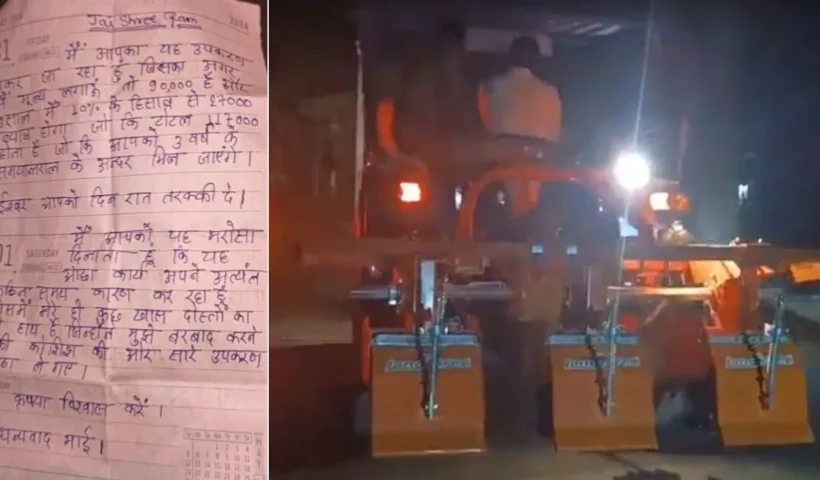 Jai Shree Ram
2026
FRIDAY
01
मैं आपका यह उपकरण
कर जा रहा हूं जिसका अगर
मूल्य लगाऊं तो 90,000 है और
साल में 10% के हिसाब से 27000
ब्याज होगा जो कि टोटल 117000
होता है जो कि आपको 3 वर्ष के
समयांतराल के अन्दर मिल जाएंगे।
ईश्वर आपको दिन रात तरक्की दे।
01
SATURDAY
मैं आपको यह भरोसा
दिलाता हूं कि यह
ओछा कार्य अपने अत्यंत
कठिन समय कारण कर रहा हूं
इसमें मेरे ही कुछ खास दोस्तों का
हाथ है जिन्होंने मुझे बरबाद करने
की कोशिश की और सारे उपकरण
ले गए।
कृपया विश्वास करें।
धन्यवाद भाई।